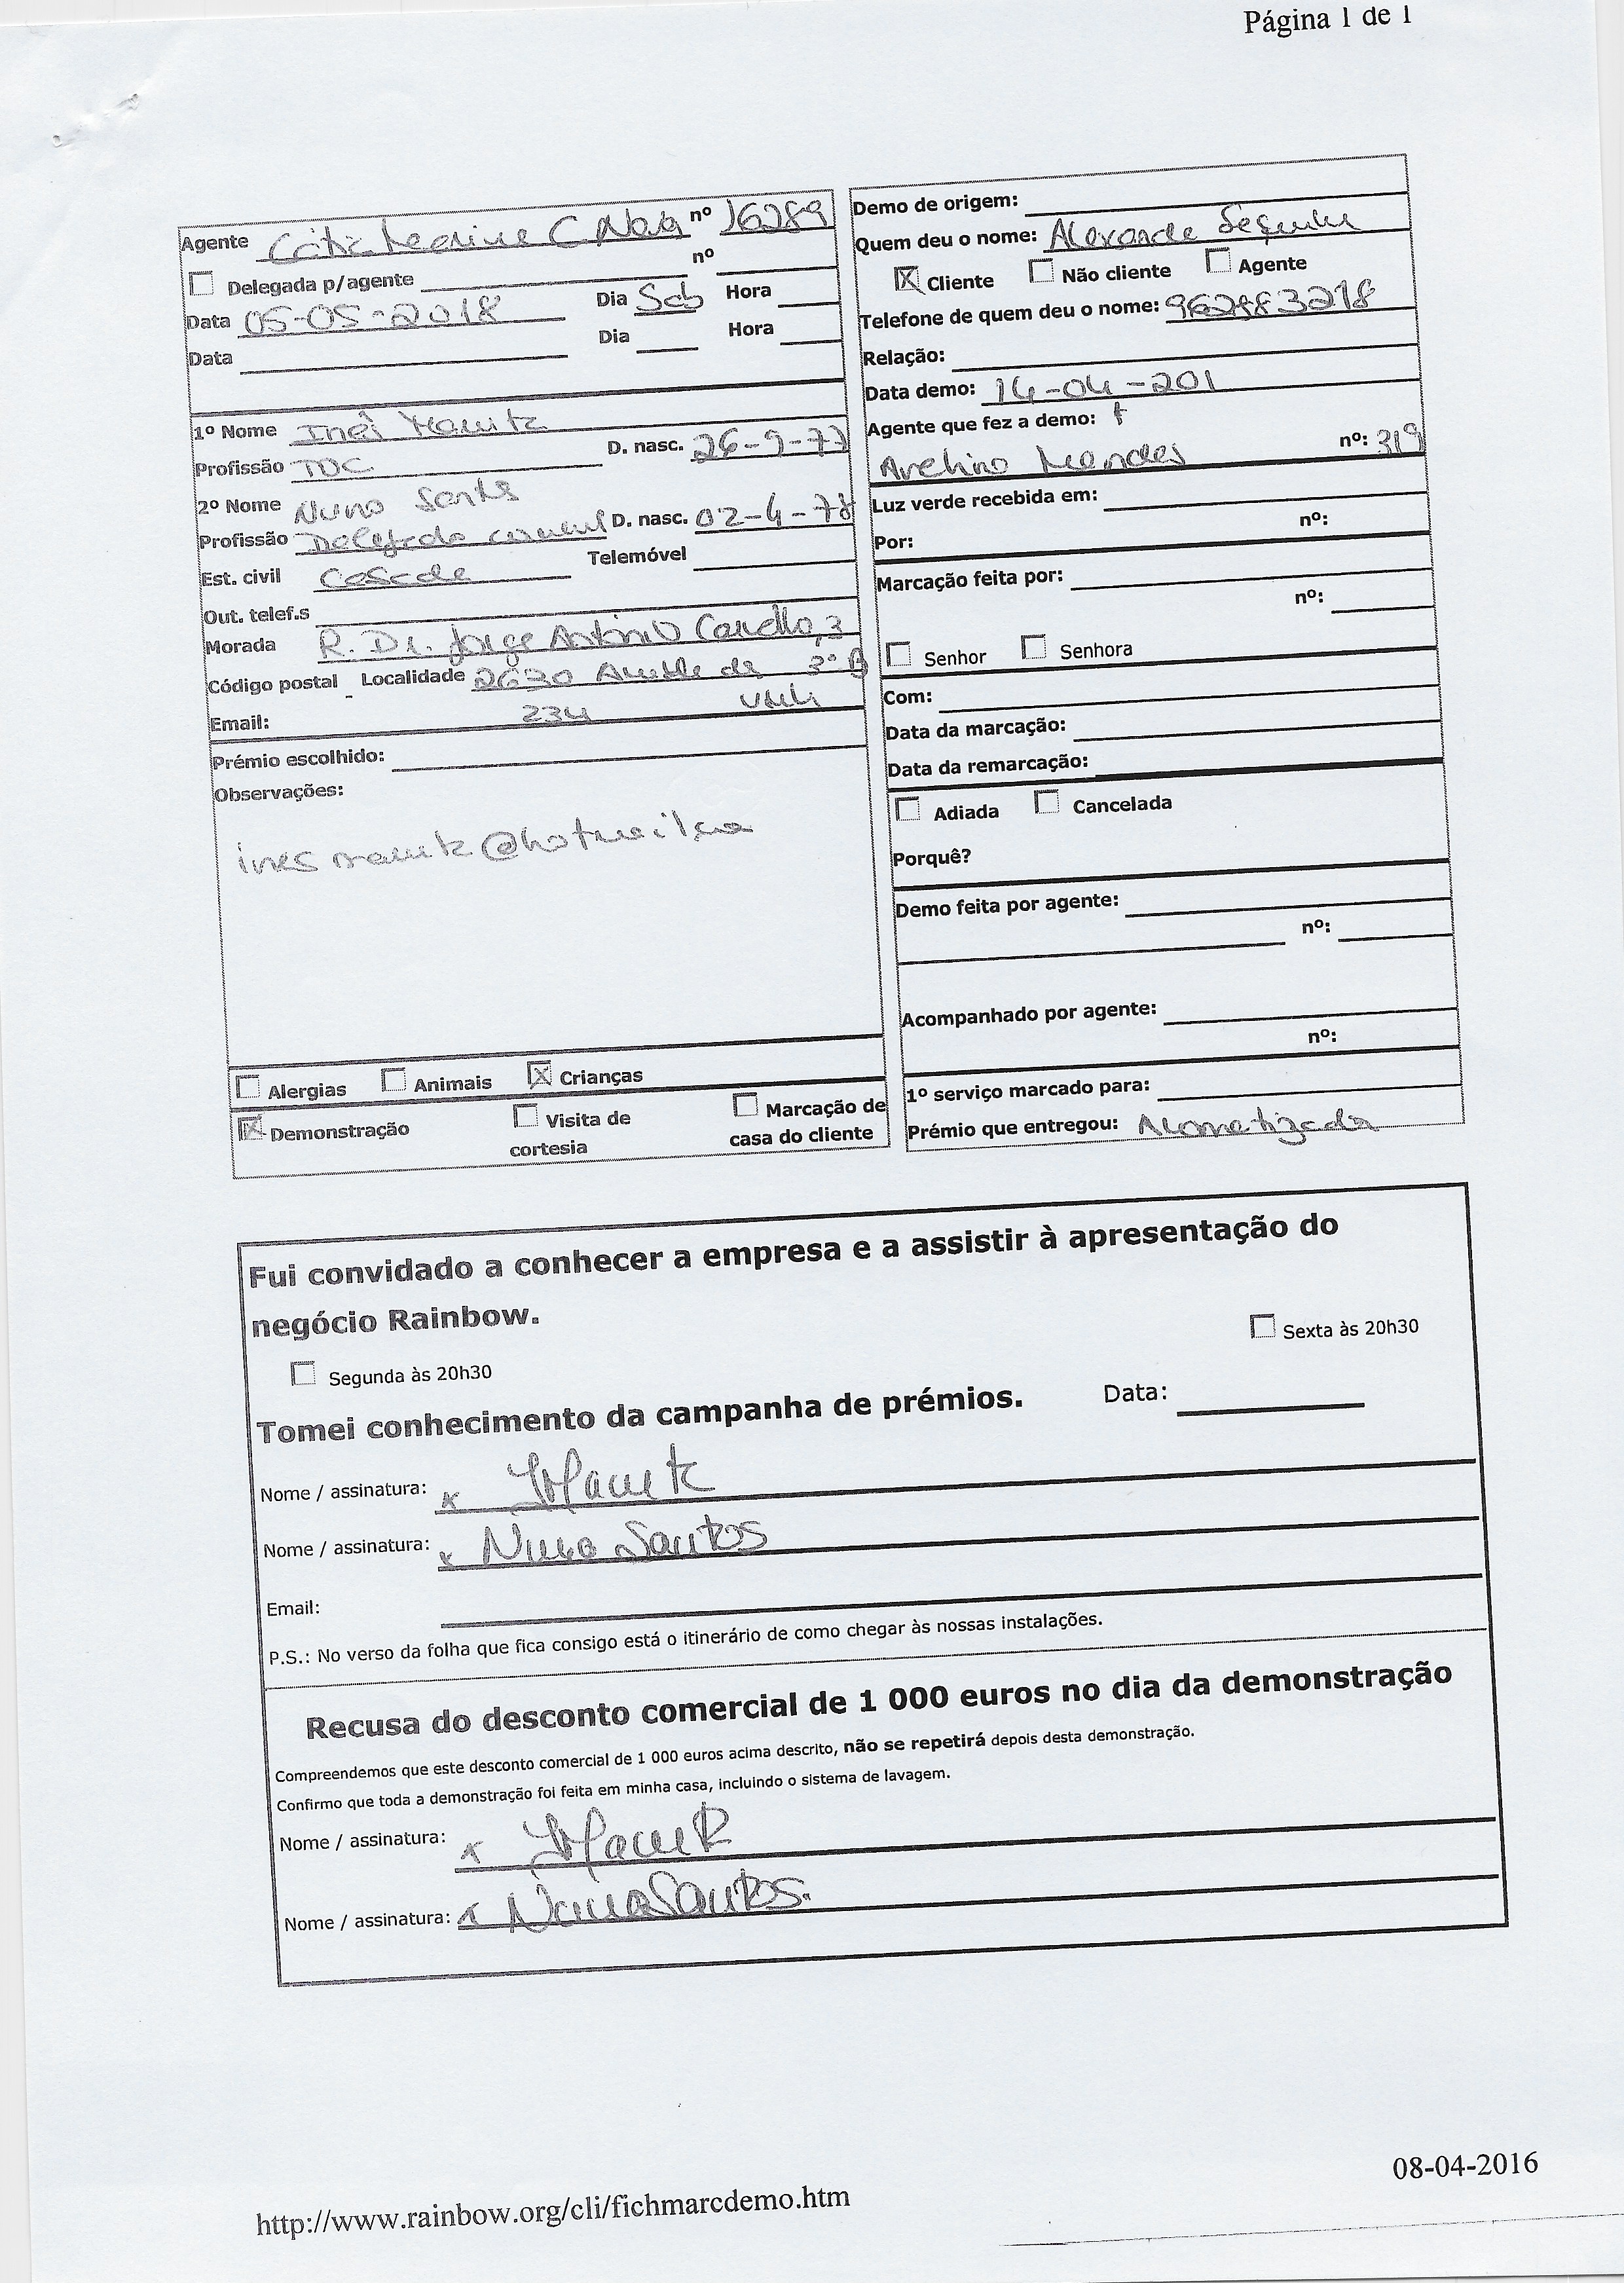 Página 1 de 1
Agente C Nova nº 16289
Delegada p/agente nº
Data 05-05-2018 Dia Sab Hora
Data Dia Hora
1º Nome Inês
Profissão TOC D. nasc. 26-9-77
2º Nome Nuno Santos
Profissão Delegado D. nasc. 02-4-78
Est. civil Casada Telemóvel
Out. telef.s
Morada R. Dr. Jorge António Carvalho, 3
Código postal - Localidade 2630 Arruda dos 3º B
Email: 234
Prémio escolhido:
Observações:
Alergias Animais Crianças
Demonstração Visita de cortesia Marcação de casa do cliente
Demo de origem:
Quem deu o nome: Alexandre
Cliente Não cliente Agente
Telefone de quem deu o nome:
Relação:
Data demo: 14-04-201
Agente que fez a demo:
Avelino Mendes nº: 319
Luz verde recebida em:
nº:
Por:
Marcação feita por:
nº:
Senhor Senhora
Com:
Data da marcação:
Data da remarcação:
Adiada Cancelada
Porquê?
Demo feita por agente:
nº:
Acompanhado por agente:
nº:
1º serviço marcado para:
Prémio que entregou:
Fui convidado a conhecer a empresa e a assistir à apresentação do
negócio Rainbow.
Segunda às 20h30 Sexta às 20h30
Tomei conhecimento da campanha de prémios. Data:
Nome / assinatura: x
Nome / assinatura: x Nuno Santos
Email:
P.S.: No verso da folha que fica consigo está o itinerário de como chegar às nossas instalações.
Recusa do desconto comercial de 1 000 euros no dia da demonstração
Compreendemos que este desconto comercial de 1 000 euros acima descrito, não se repetirá depois desta demonstração.
Confirmo que toda a demonstração foi feita em minha casa, incluindo o sistema de lavagem.
Nome / assinatura: x
Nome / assinatura: x Nuno Santos.
http://www.rainbow.org/cli/fichmarcdemo.htm
08-04-2016